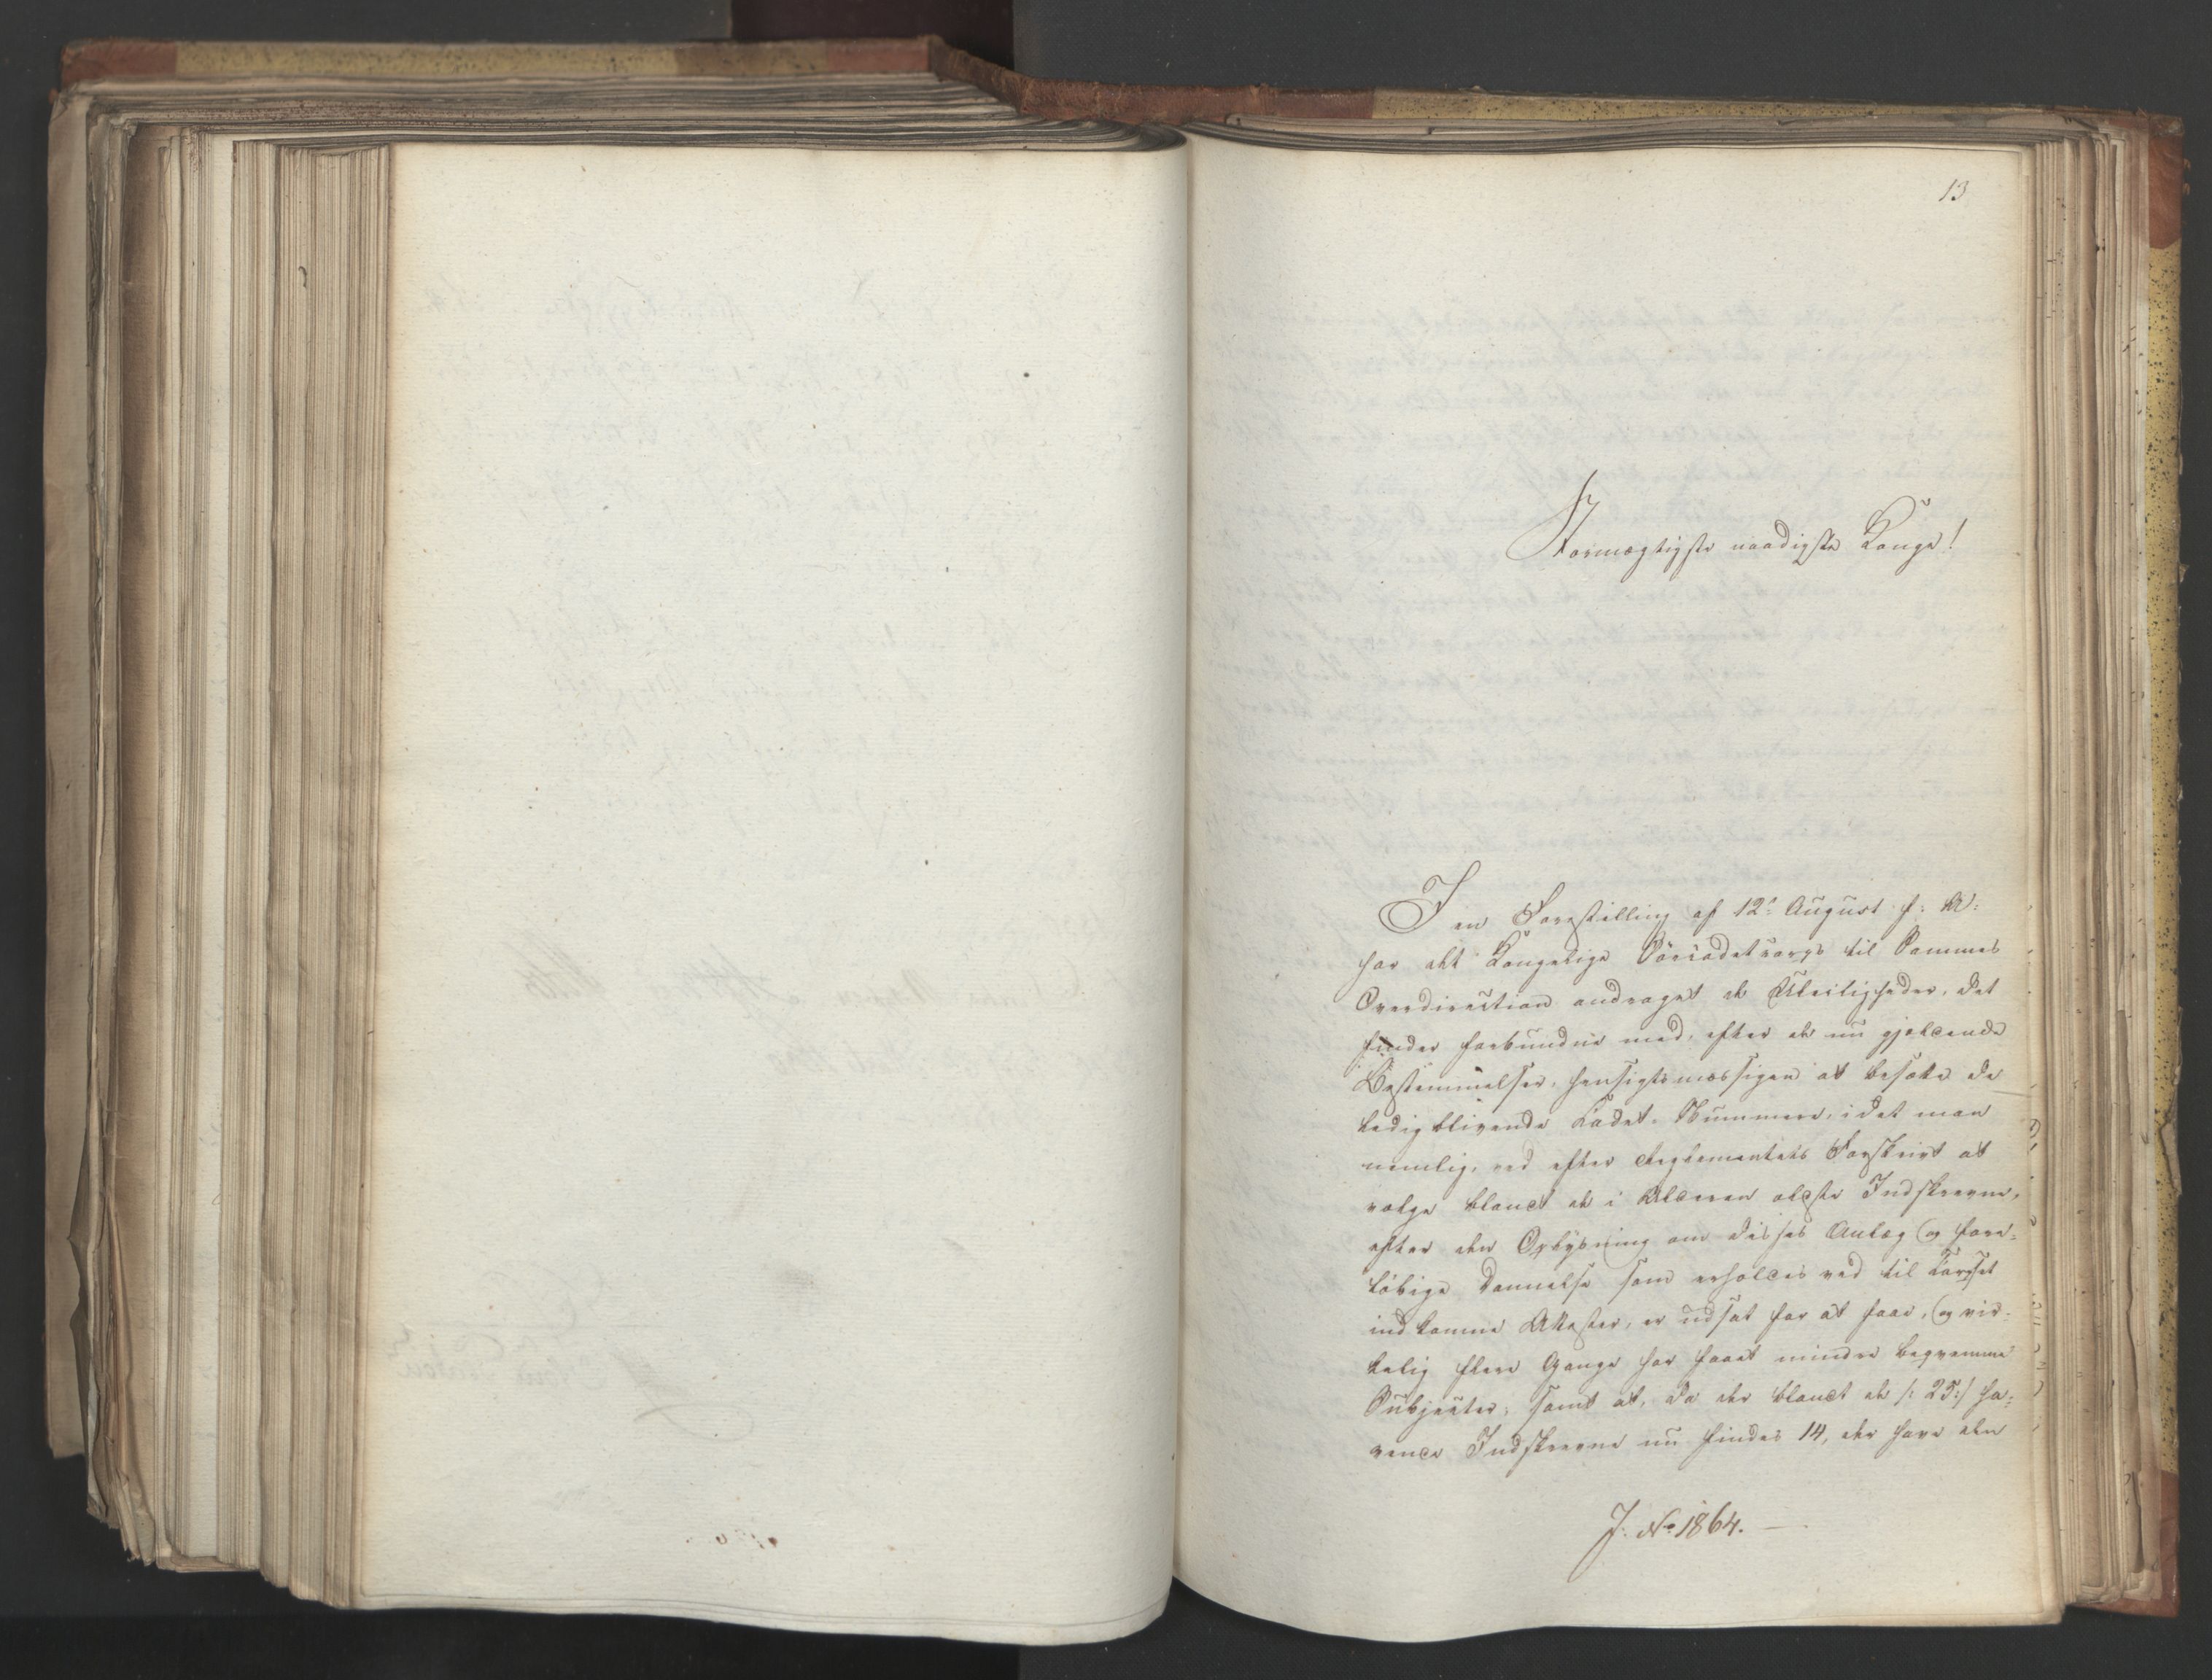 13
Stormægtigste naadigste Konge!
I en Forestilling af 12te August f: A:
har det Kongelige Søecadetcorps til Sammes
Overdirection andraget de Uleiligheder, det
finder forbundne med, efter de nu gjældende
Bestemmelser, hensigtsmæssigen at besætte de
ledigblivende Cadet-Nummere, idet man
nemlig, ved efter Reglementets Forskrivt at
vælge blandt de i Alderen ælste Indskrevne,
efter den Oplysning om disses Anlæg og fore-
løbige Dannelse som erholdes ved til Corpset
indkomne Attester, er udsat for at faae, og vir-
kelig flere Gange har faaet mindre beqvemme
Subjecter; samt at, da der blandt de /: 25:/ ha-
vende Indskrevne nu findes 14, der have den
J. No 1864. —